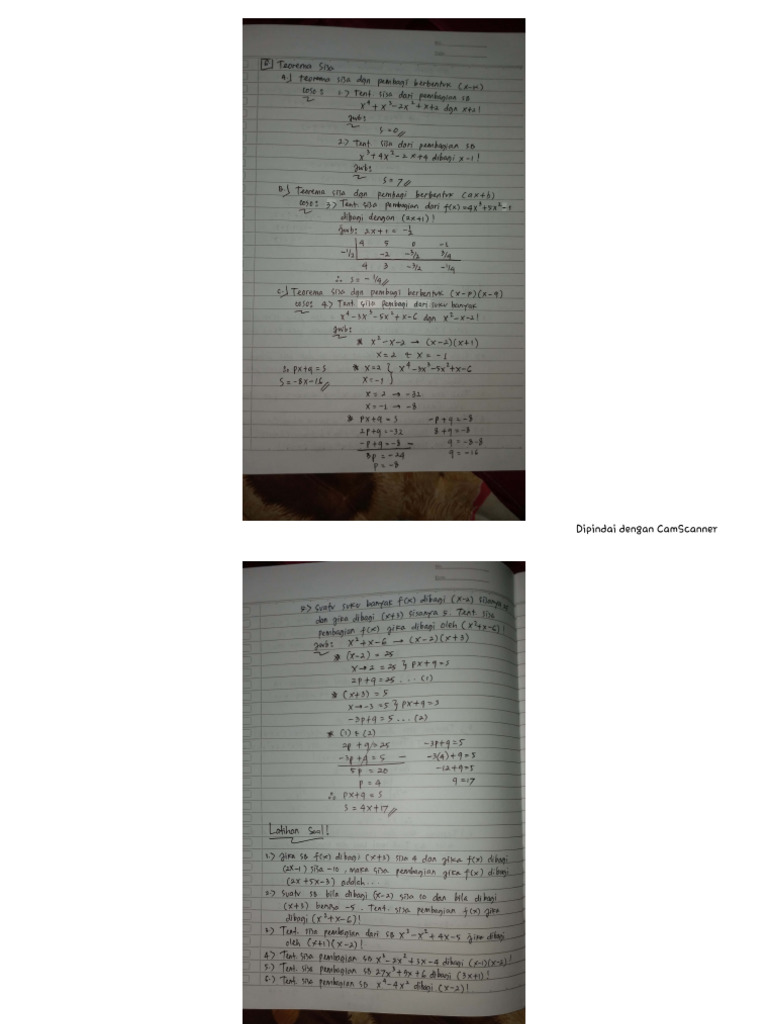 Teorema Sisa
A.) teorema sisa dgn pembagi berbentuk (x-k)
coso: 1.) Tent. sisa dari pembagian SB
x⁴ + x³ - 2x² + x + 2 dgn x+2!
Jwb:
S = 0
2.) Tent. sisa dari pembagian SB
x³ + 4x² - 2x + 4 dibagi x-1!
Jwb:
S = 7
B.) Teorema sisa dgn pembagi berbentuk (ax+b)
coso: 3.) Tent. sisa pembagian dari f(x) = 4x³ + 5x² - 1
dibagi dengan (2x+1)!
Jwb: 2x+1 = -1/2
4 5 0 -1
-1/2 -2 -3/2 3/4
4 3 -3/2 -1/4
∴ S = -1/4
C.) Teorema sisa dgn pembagi berbentuk (x-p)(x-q)
coso: 4.) Tent. sisa pembagi dari suku banyak
x⁴ - 3x³ - 5x² + x - 6 dgn x² - x - 2!
Jwb:
* x² - x - 2 → (x-2)(x+1)
x = 2 & x = -1
∴ px+q = S * x = 2 } x⁴ - 3x³ - 5x² + x - 6
S = -8x - 16 x = -1 }
x = 2 → -32
x = -1 → -8
* px+q = S -p+q = -8
2p+q = -32 8+q = -8
-p+q = -8 - q = -8-8
3p = -24 q = -16
p = -8
Dipindai dengan CamScanner
5.) Suatu suku banyak f(x) dibagi (x-2) sisanya
dan jika dibagi (x+3) sisanya 5. Tent sisa
pembagian f(x) jika dibagi oleh (x²+x-6)!
Jwb: x² + x - 6 → (x-2)(x+3)
* (x-2) = 25
x → 2 = 25 } px+q = S
2p+q = 25 ... (1)
* (x+3) = 5
x → -3 = 5 } px+q = S
-3p+q = 5 ... (2)
* (1) & (2)
2p + q = 25 -3p+q = 5
-3p + q = 5 - -3(4)+q = 5
5p = 20 -12+q = 5
p = 4 q = 17
∴ px+q = S
S = 4x+17
Latihan Soal!
1.) Jika SB f(x) dibagi (x+3) sisa 4 dan jika f(x) dibagi
(2x-1) sisa -10, maka sisa pembagian jika f(x) dibagi
(2x+5x-3) adalah...
2.) Suatu SB bila dibagi (x-2) sisa 10 dan bila dibagi
(x+3) bersisa -5. Tent. sisa pembagian f(x) jika
dibagi (x²+x-6)!
3.) Tent. sisa pembagian dari SB x³ - x² + 4x - 5 jika dibagi
oleh (x+1)(x-2)!
4.) Tent. sisa pembagian SB x³ - 2x² + 3x - 4 dibagi (x-1)(x-2)!
5.) Tent. sisa pembagian SB 27x³ + 9x + 6 dibagi (3x+1)!
6.) Tent. sisa pembagian SB x⁴ - 4x² dibagi (x-2)!